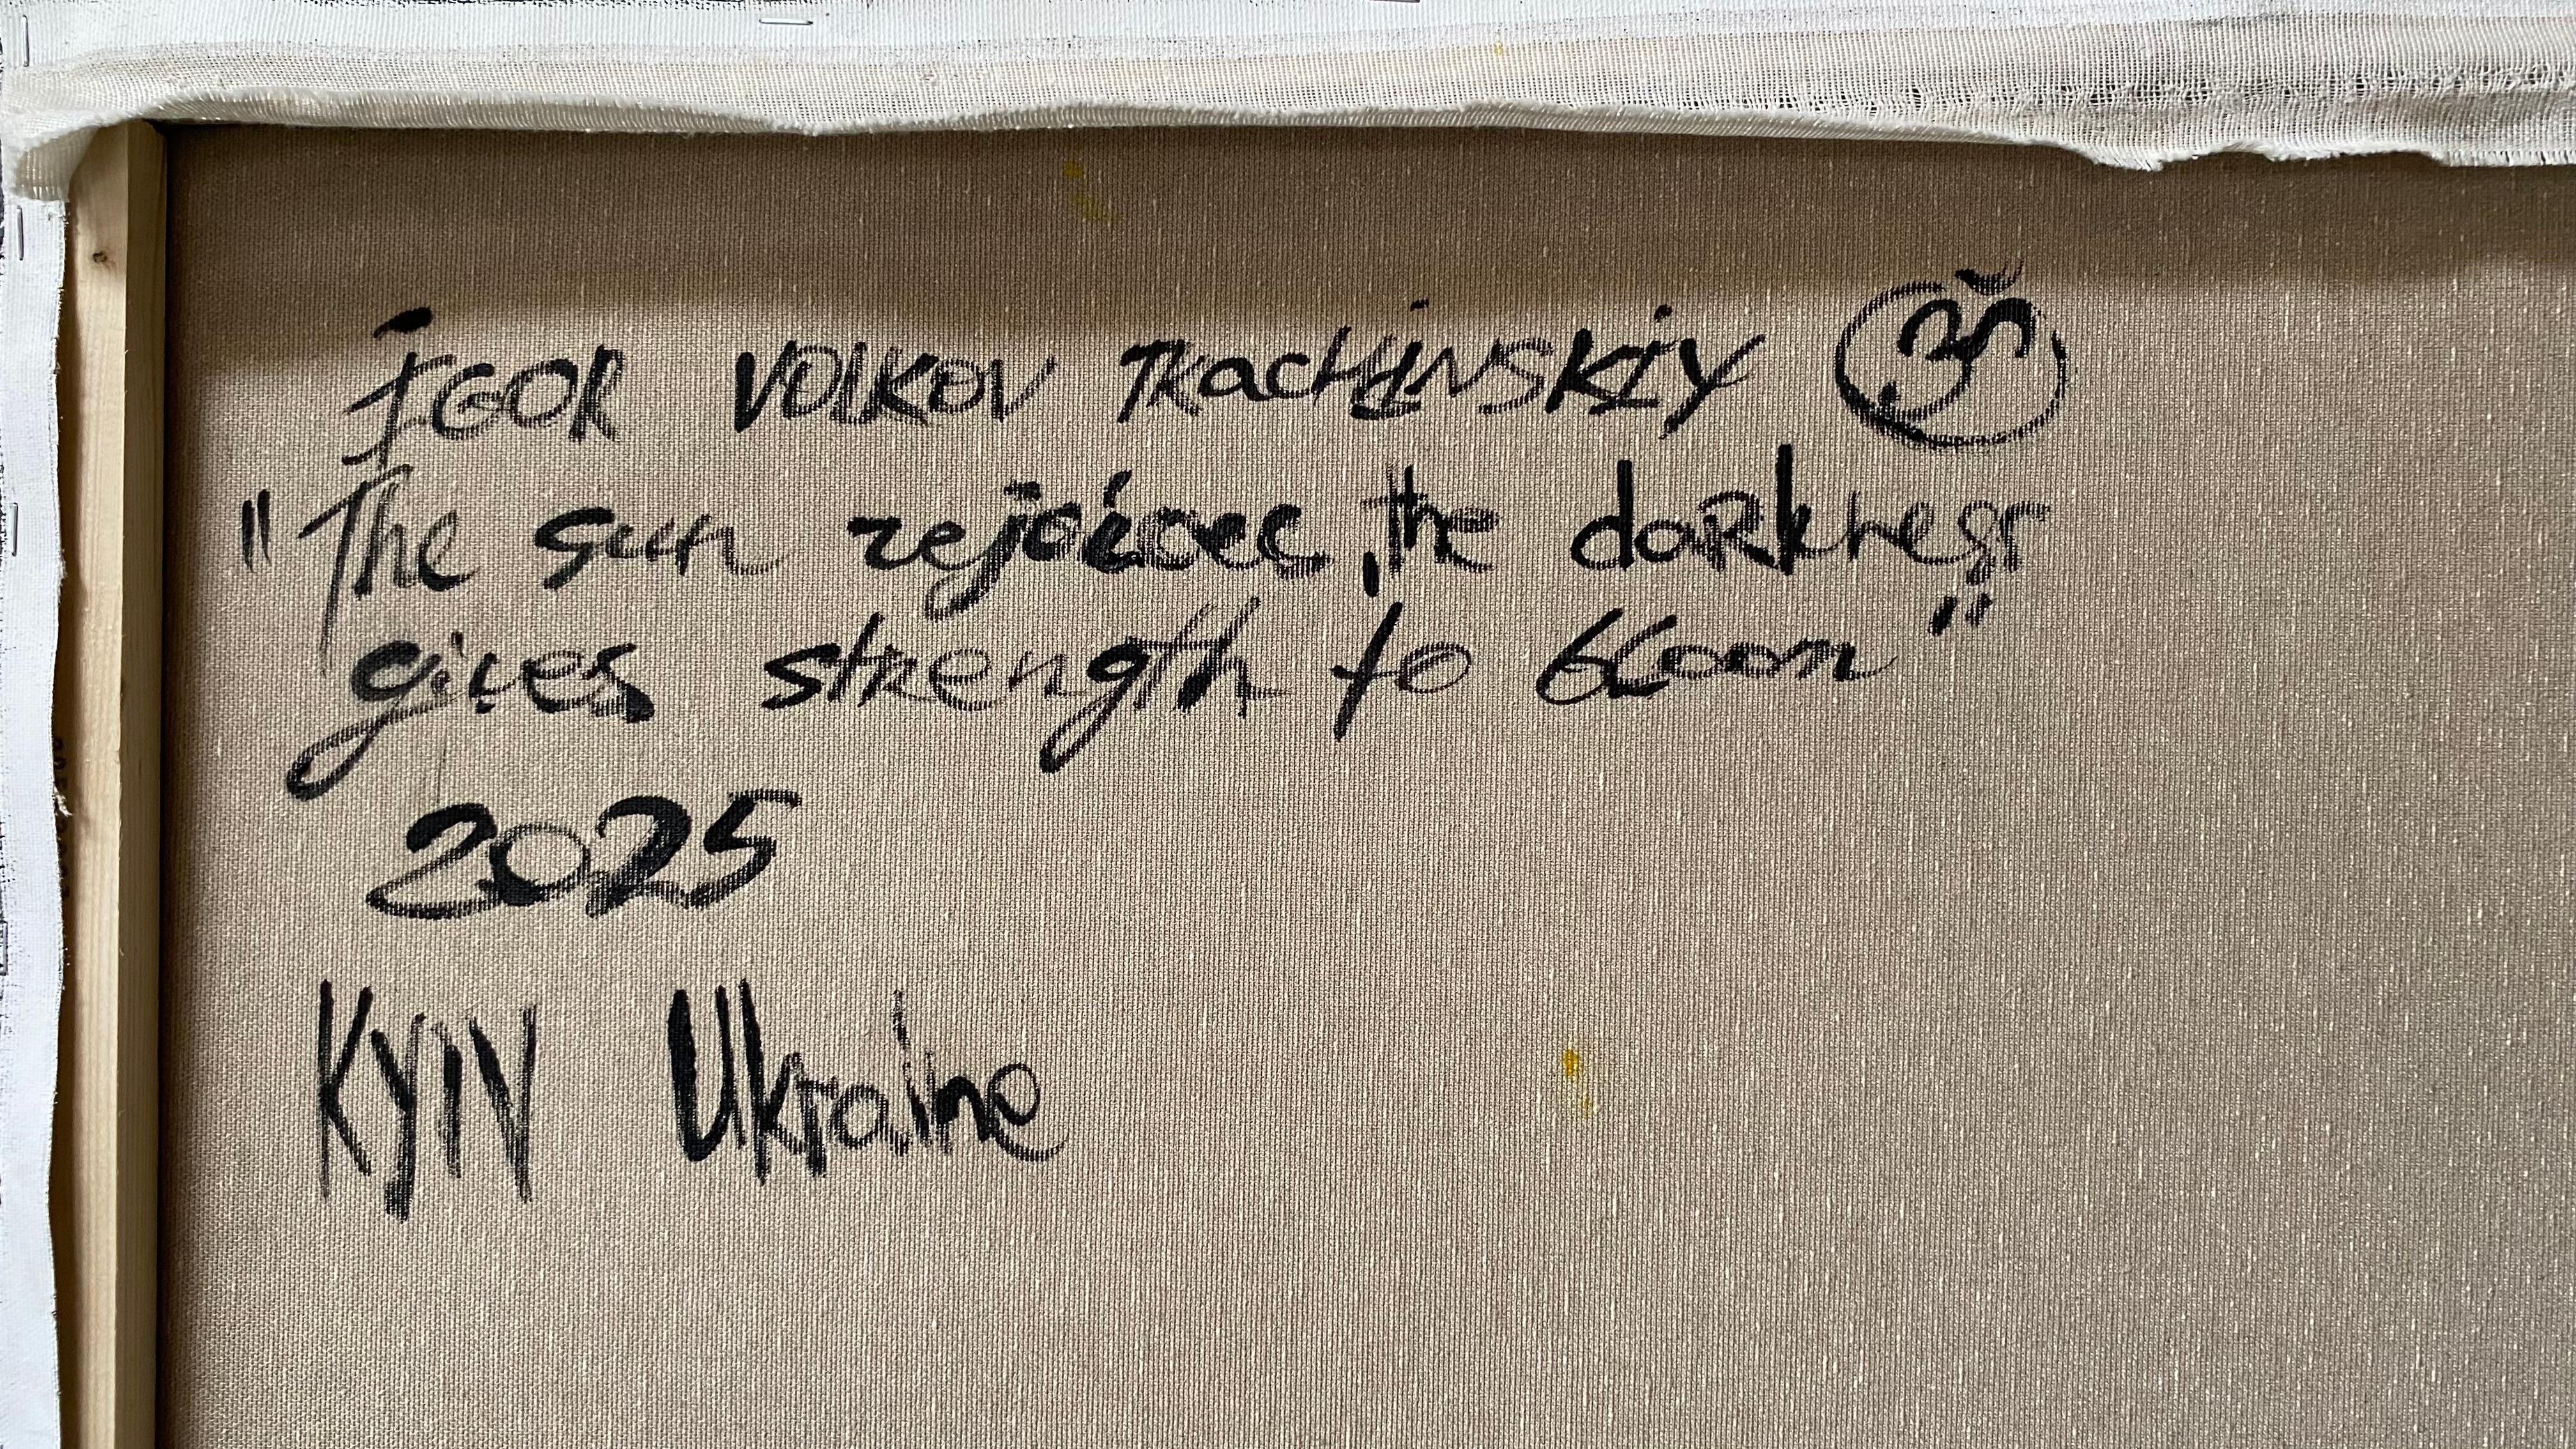 IGOR VOLKOV TKACHINSKIY ॐ
"The sun rejoices, the darkness
gives strength to bloom"
2025
KYIV Ukraine